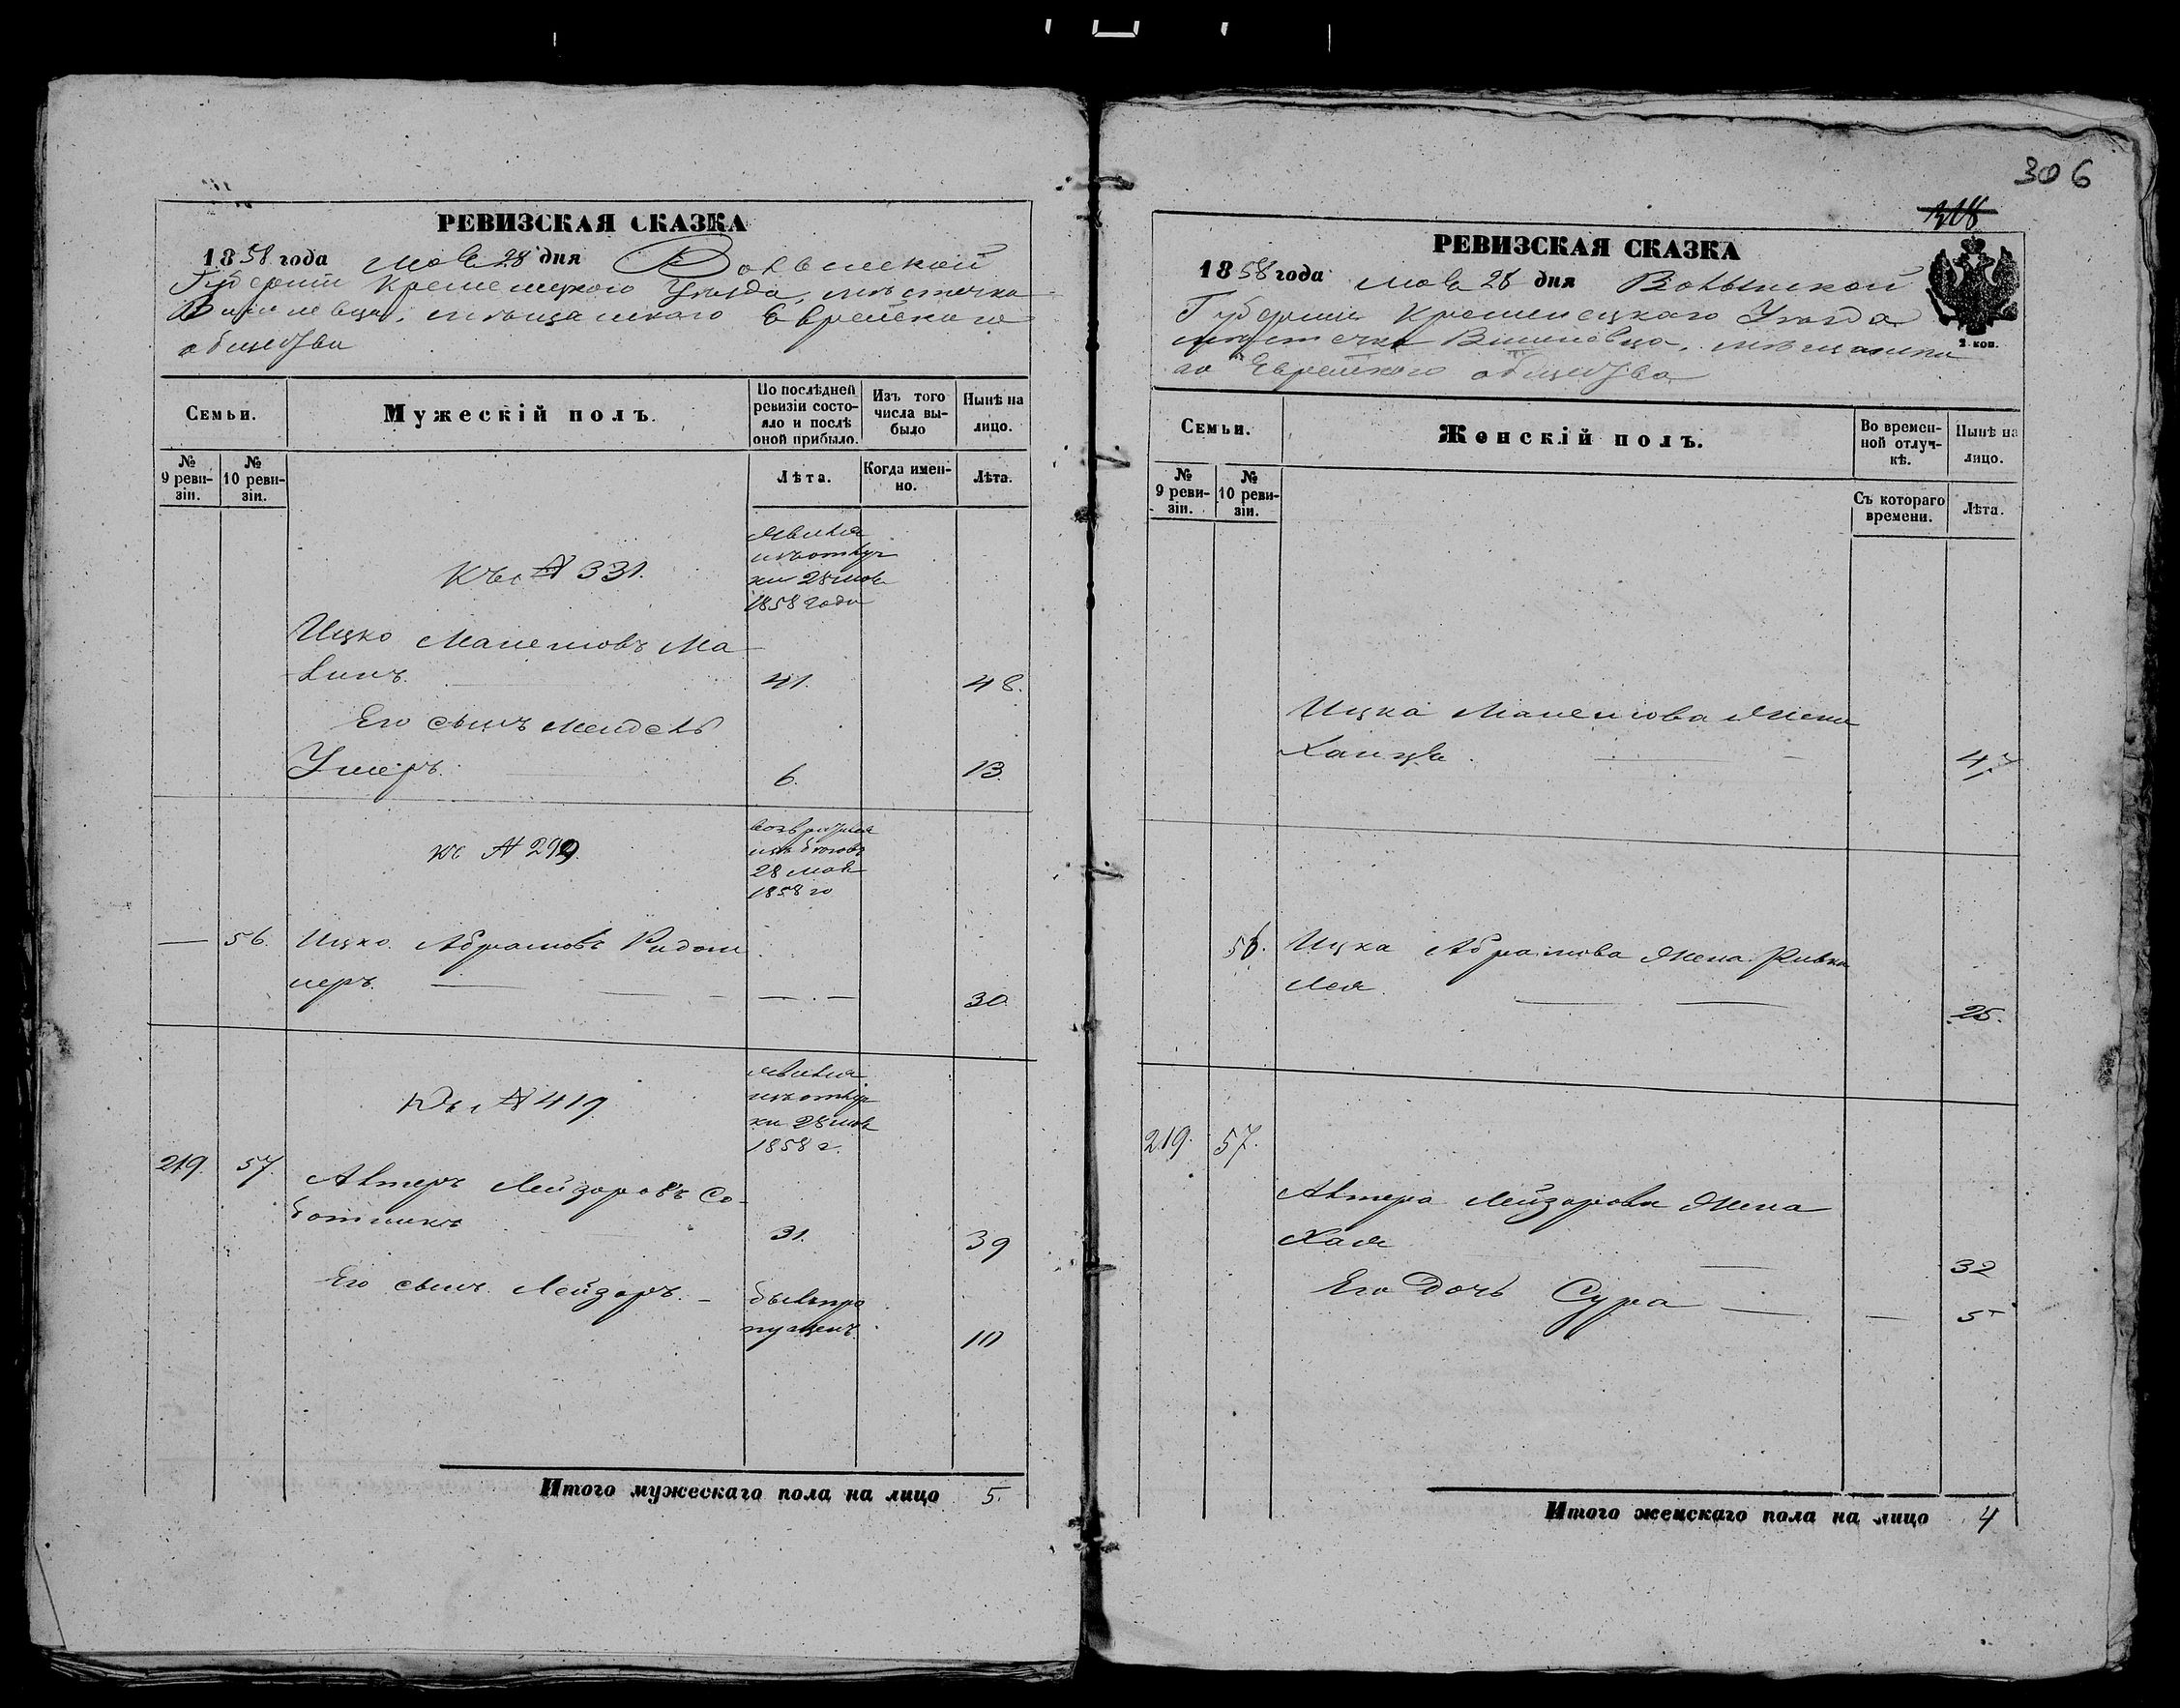 306
318
РЕВИЗСКАЯ СКАЗКА
1858 года мая 28 дня Волынской
Губерніи Кременецкого Уѣзда, мѣстечка
Вишневца, мѣщанскаго Еврейскаго
общества
Семьи.
Мужескій полъ.
По послѣдней ревизіи состояло и послѣ оной прибыло.
Изъ того числа выбыло
Нынѣ на лицо.
№ 9 ревизіи.
№ 10 ревизіи.
Лѣта.
Когда именно.
Лѣта.
Къ № 331.
явился
изъ отлуч
ки 28 мая
1858 года
Ицко Манемовъ Ма
линъ. 41. 48.
Его сынъ Мендель
Умеръ. 6. 13.
къ № 299.
28 мая
1858 го
— 56. Ицко Абрамовъ
неръ. 30.
Къ № 417
явился
изъ отлуч
ки 28 мая
1858 г.
219. 57. Алтеръ Лейзоровъ Со-
ботникъ 31. 39
Его сынъ Лейзоръ. — былъ про
пущенъ 10
Итого мужескаго пола на лицо 5.
РЕВИЗСКАЯ СКАЗКА
1858 года мая 28 дня Волынской
Губерніи Кременецкаго Уѣзда
мѣстечка Вишневца, мѣщанска
го Еврейского общества
2 коп.
Семьи.
Женскій полъ.
Во временной отлучкѣ.
Нынѣ на лицо.
№ 9 ревизіи.
№ 10 ревизіи.
Съ котораго времени.
Лѣта.
Ицка Манемова жена
47
56. Ицка Абрамова жена Ривка
Лея 25.
219. 57.
Алтера Лейзорова жена
Хая 32
Его дочь Сура — 5
Итого женскаго пола на лицо 4